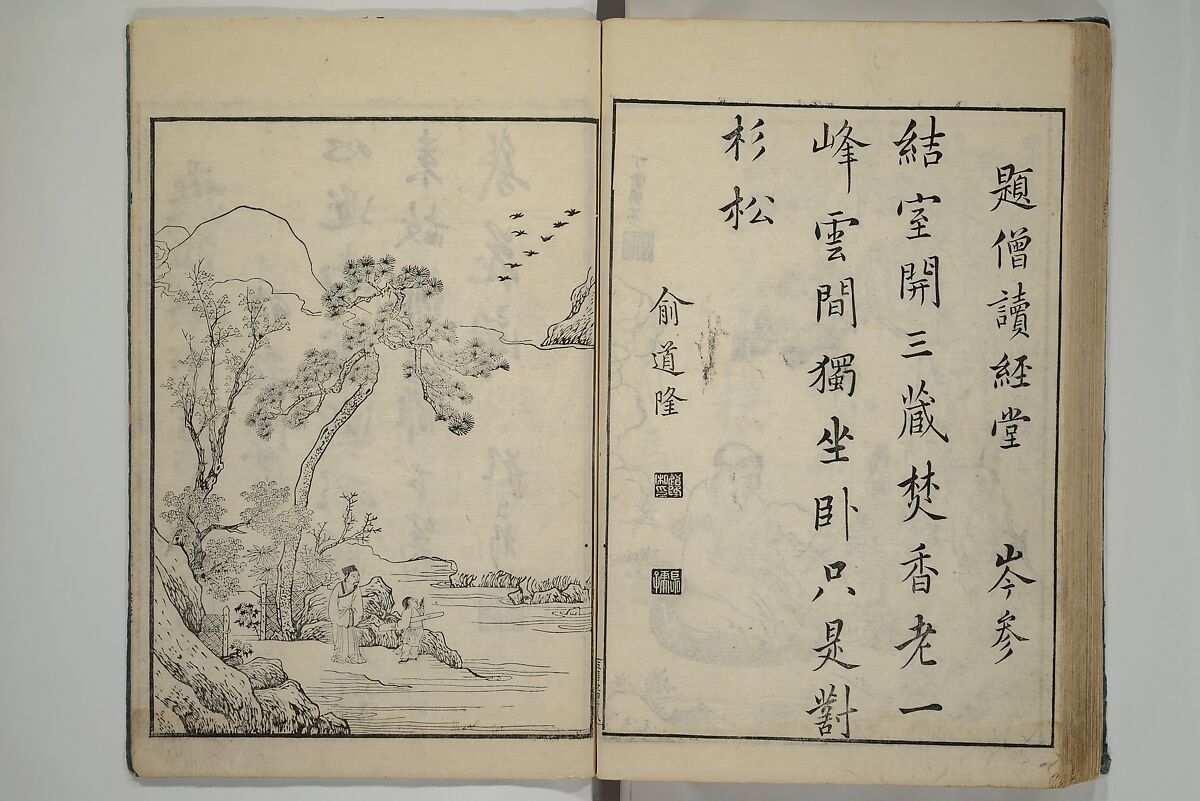 題僧讀經堂 岑參
結室開三藏焚香老一
峰雲間獨坐卧只是對
杉松
俞道隆